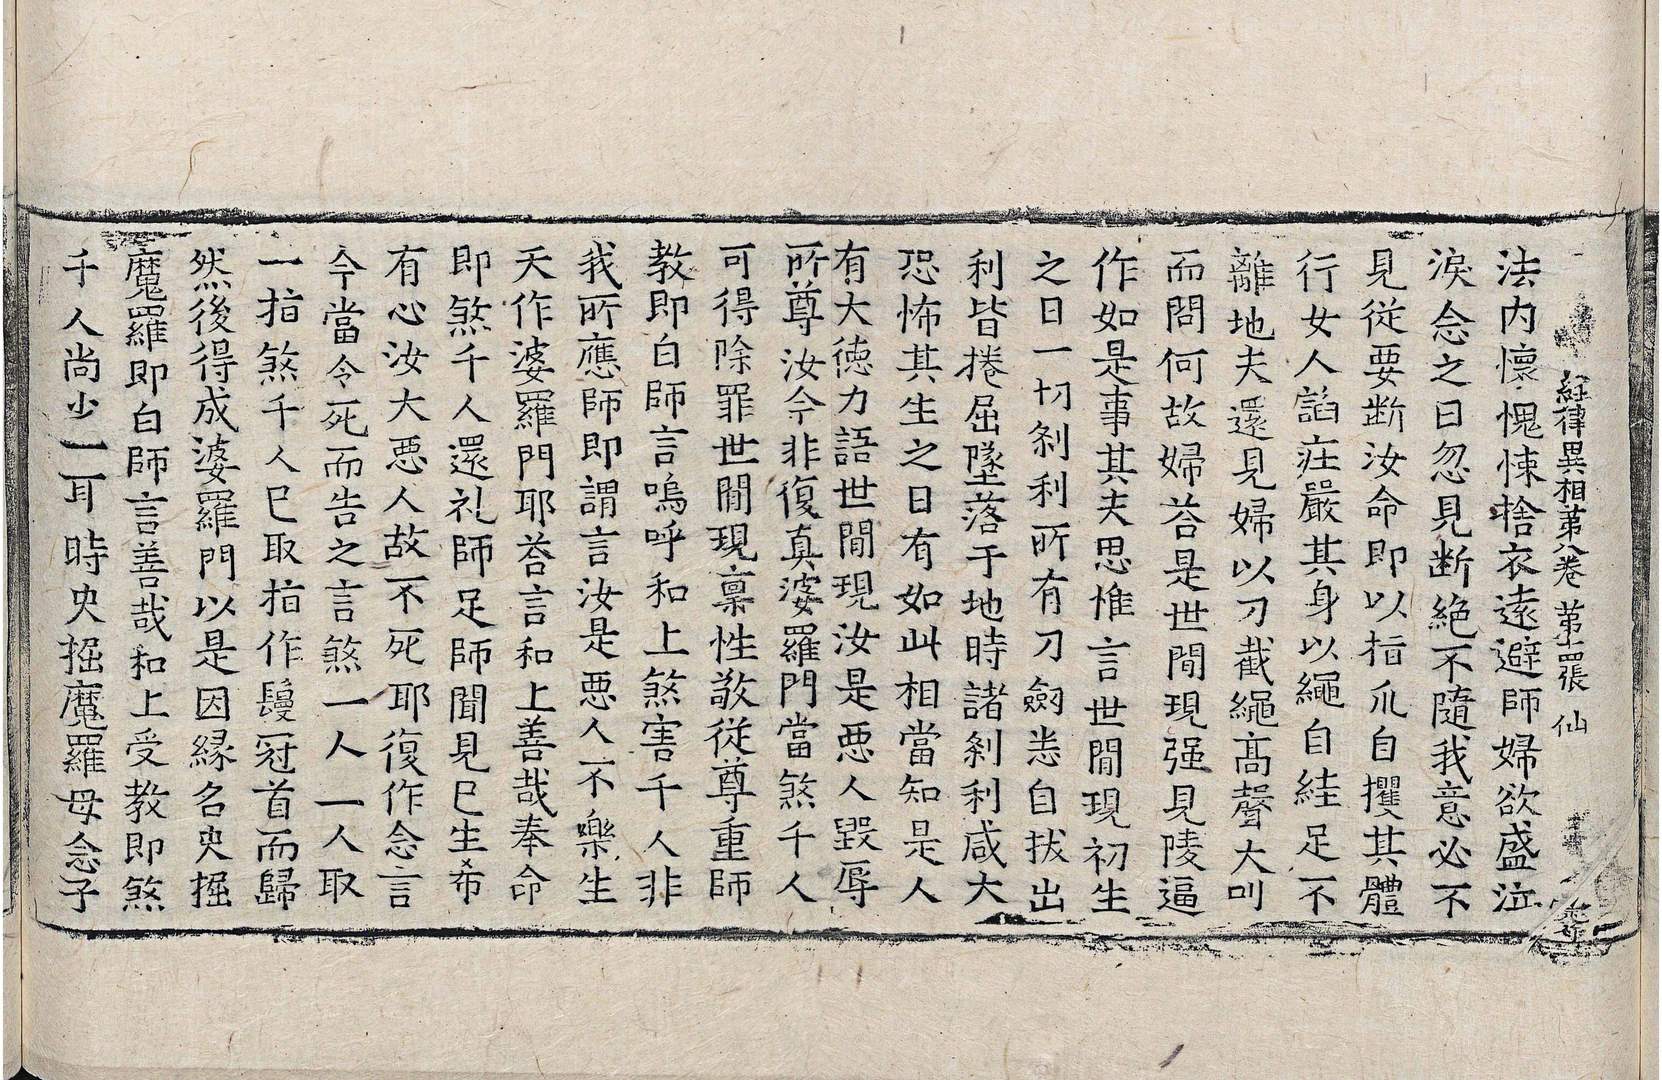 經律異相苐八卷 苐十四張 仙
法内懷愧悚捨衣遠避師婦欲盛泣
淚念之曰忽見断絶不隨我意必不
見從要断汝命即以指爪自攫其體
行女人謟㽵嚴其身以繩自絓足不
離地夫還見婦以刀截繩高聲大叫
而問何故婦荅是世間現强見陵逼
作如是事其夫思惟言世間現初生
之日一切刹利所有刀劒悉自拔出
利皆捲屈墜落于地時諸刹利咸大
恐怖其生之日有如此相當知是人
有大德力語世間現汝是惡人毀辱
所尊汝今非復真婆羅門當煞千人
可得除罪世間現稟性敬從尊重師
教即白師言嗚呼和上煞害千人非
我所應師即謂言汝是惡人不樂生
天作婆羅門耶荅言和上善哉奉命
即煞千人還礼師足師聞見已生希
有心汝大惡人故不死耶復作念言
今當令死而告之言煞一人一人取
一指煞千人已取指作鬘冠首而歸
然後得成婆羅門以是因縁名央掘
魔羅即白師言善哉和上受教即煞
千人尚少一耳時央掘魔羅母念子